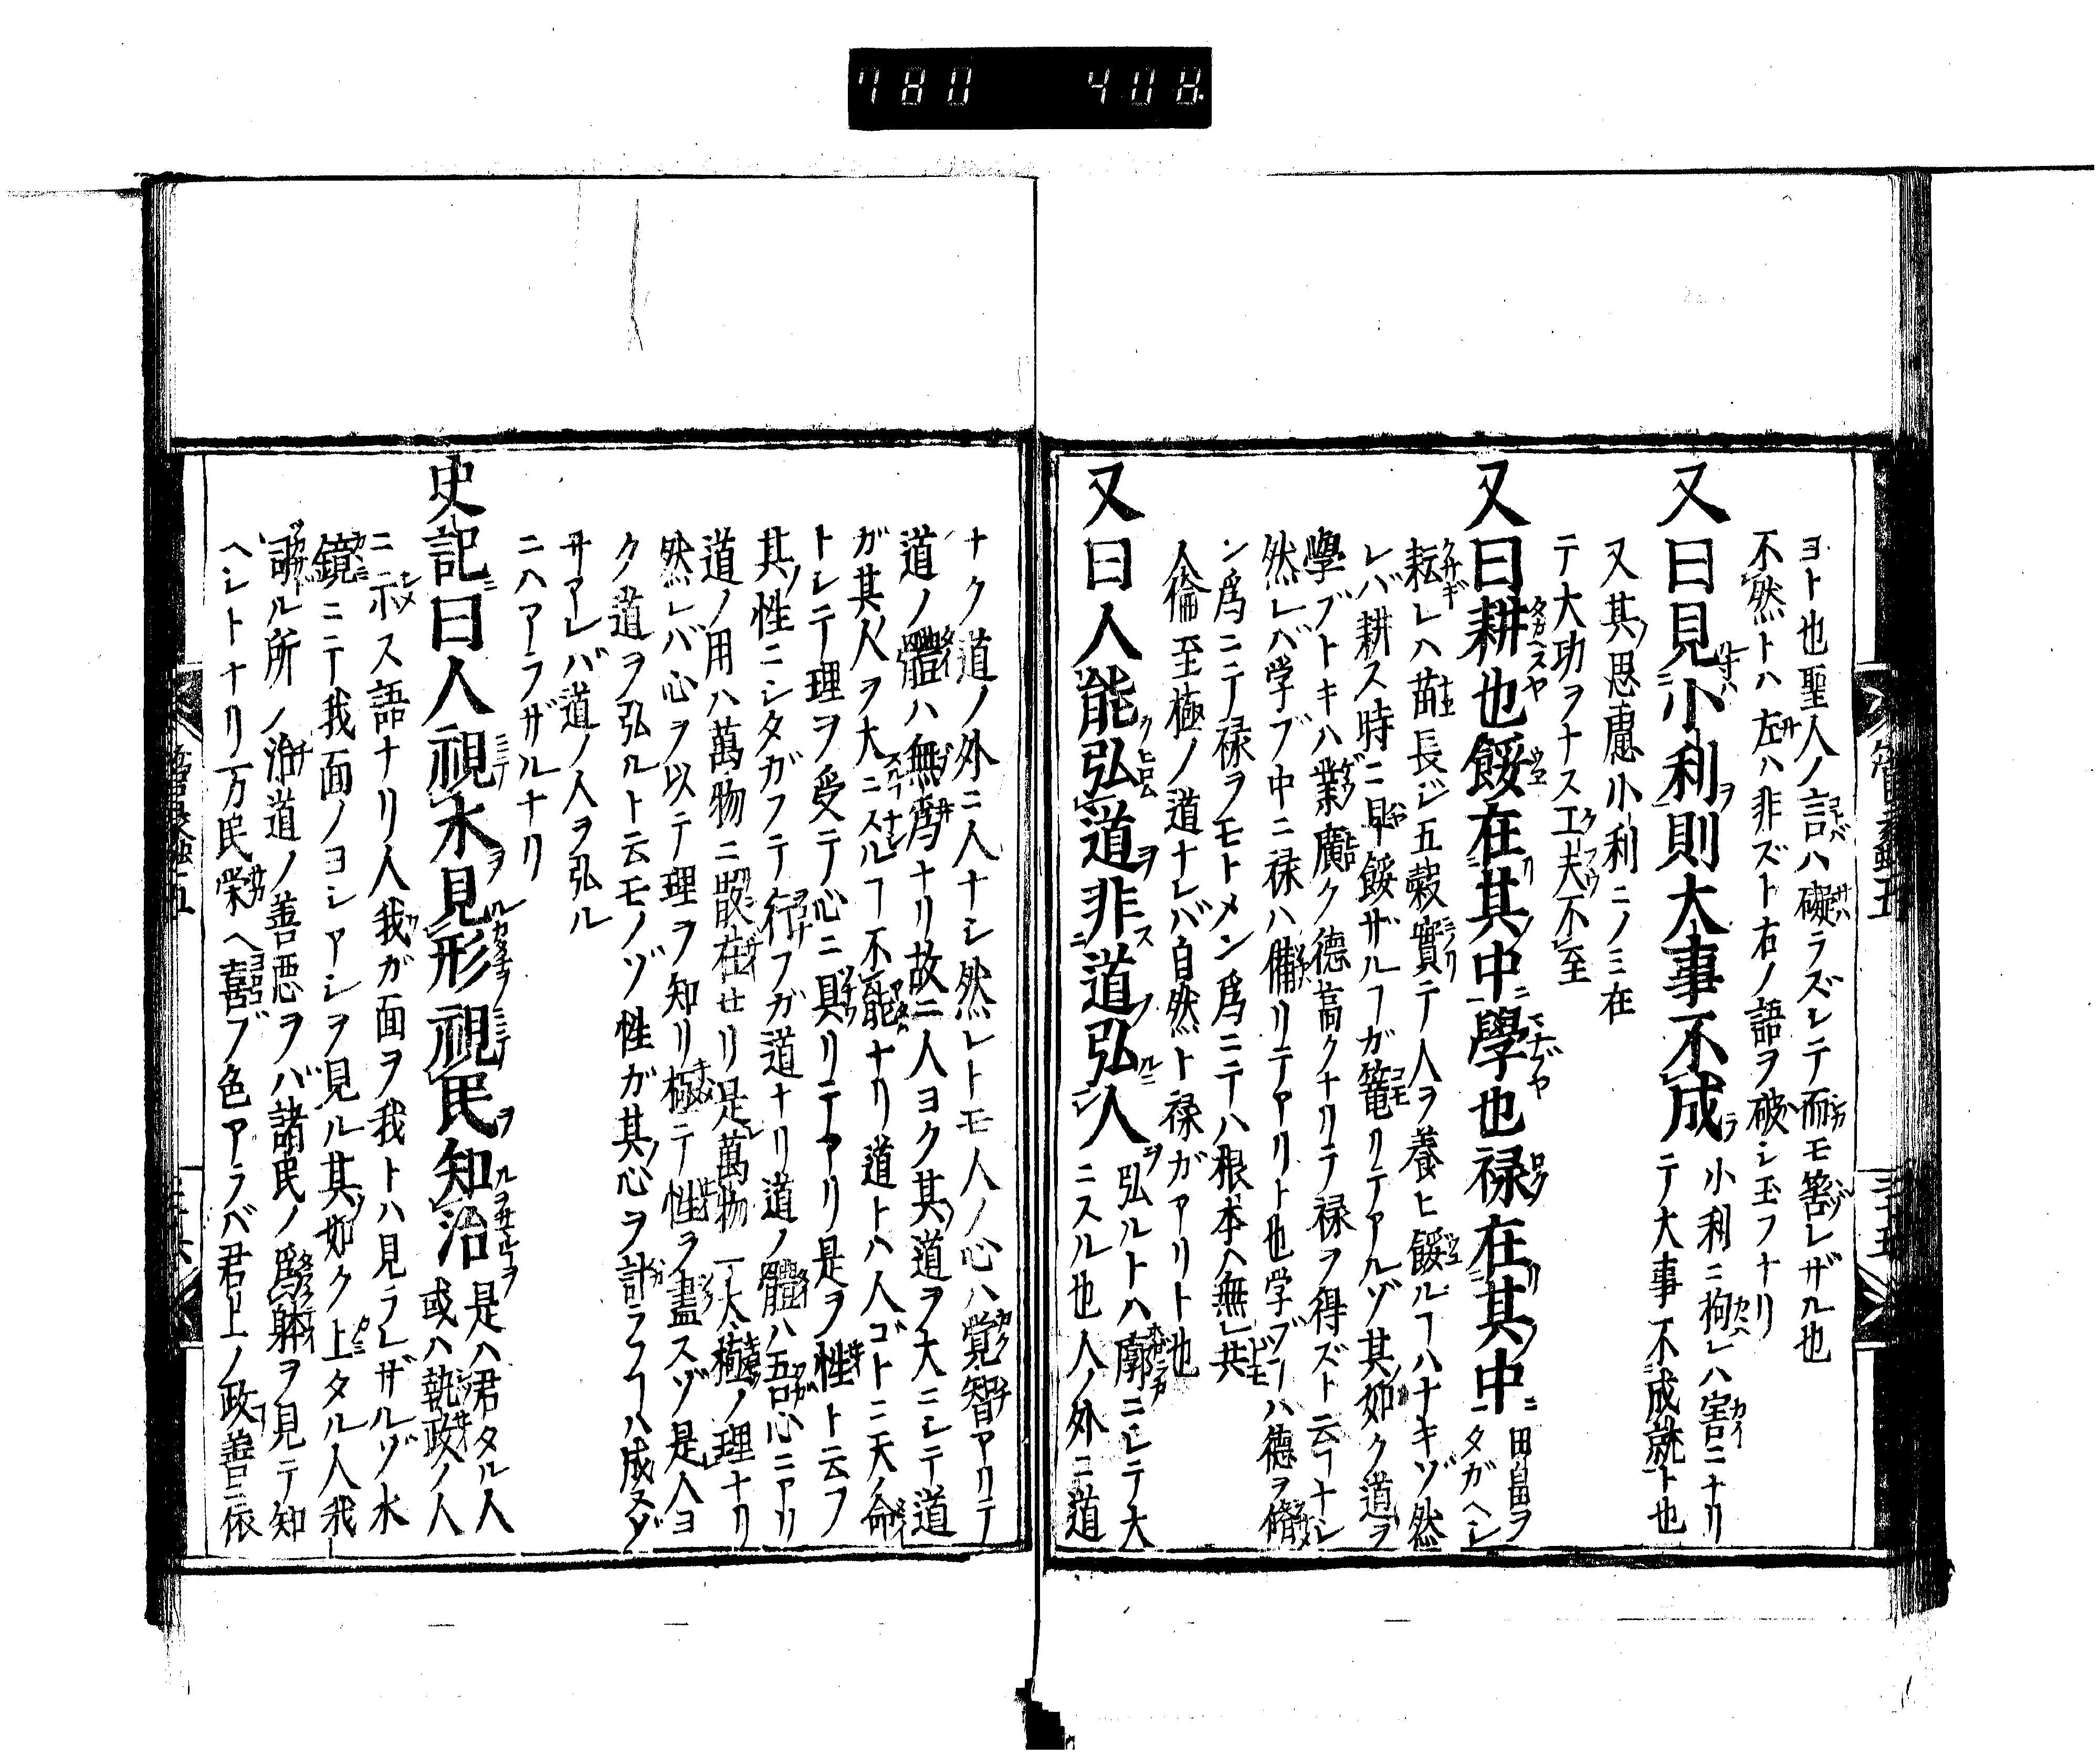 780 408
ヨト也聖人ノ言ハ礙ラズシテ而モ答レザル也
不然トハ左ハ非ズト右ノ語ヲ破シ玉フナリ
又曰見小利則大事不成 小利ニ拘レハ害ニナリ
テ大事不成就ト也
又其思慮小利ニノミ在
テ大功ヲナス工夫不至
又曰耕也餒在其中學也禄在其中 田畠ヲ
タガヘシ
耘レハ苗長ジ五穀實テ人ヲ養ヒ餒ルヿハナキゾ然
レバ耕ス時ニ早餒ザルヿガ篭リテアルゾ其如ク道ヲ
學ブトキハ業廣ク德高クナリテ禄ヲ得ズト云ヿナシ
然レバ学ブ中ニ禄ハ備リテアリト也学ブヿハ德ヲ脩
ン爲ニテ禄ヲモトメン爲ニテハ根本ヘ無レ共
人倫至極ノ道ナレバ自然ト禄ガアリト也
又曰人能弘道非道弘人 弘ルトハ廓ニシテ大
ニスル也人ノ外ニ道
ナク道ノ外ニ人ナシ然レトモ人ノ心ハ覚智アリテ
道ノ體ハ無爲ナリ故ニ人ヨク其道ヲ大ニシテ道
ガ其人ヲ大ニスルヿ不能ナリ道トハ人ゴトニ天ノ命
トシテ理ヲ受テ心ニ具リテアリ是ヲ性ト云フ
其性ニシタガフテ行フガ道ナリ道ノ體ハ吾心ニアリ
道ノ用ハ萬物ニ散在セリ是萬物一太極ノ理ナリ
然レバ心ヲ以テ理ヲ知リ極テ性ヲ盡スゾ是人ヨ
ク道ヲ弘ルト云モノゾ性ガ其心ヲ計ラフヿハ成ヌゾ
サアレバ道ノ人ヲ弘ル
ニハアラザルナリ
史記曰人視水見形視民知治 是ハ君タル人
或ハ執政ノ人
ニ示ス語ナリ人我ガ面ヲ我トハ見ラレザルゾ水
鏡ニテ我面ノヨシアシヲ見ル其如ク上タル人我
司ル所ノ治道ノ善悪ヲバ諸民ノ爲躰ヲ見テ知
ヘシトナリ万民栄ヘ喜ブ色アラバ君上ノ政善ニ依